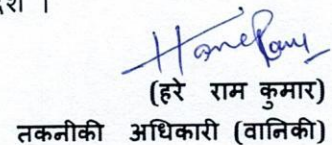 (हरे राम कुमार)
तकनीकी अधिकारी (वानिकी)